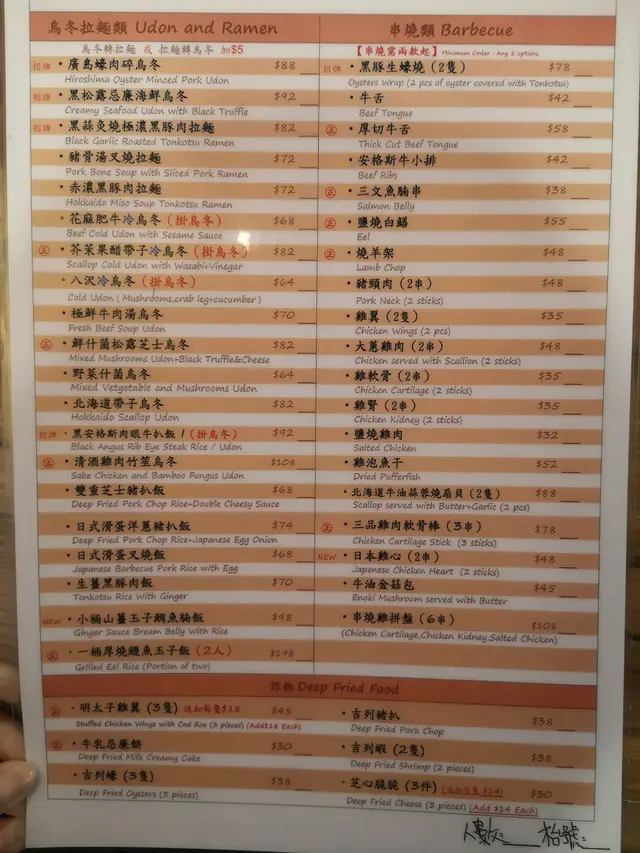 烏冬拉麵類 Udon and Ramen
烏冬轉拉麵 或 拉麵轉烏冬 加$5
招牌 ·廣島蠔肉碎烏冬 $88
Hiroshima Oyster Minced Pork Udon
招牌 ·黑松露忌廉海鮮烏冬 $92
Creamy Seafood Udon with Black Truffle
招牌 ·黑蒜炙燒極濃黑豚肉拉麵 $82
Black Garlic Roasted Tonkotsu Ramen
·豬骨湯叉燒拉麵 $72
Pork Bone Soup with Sliced Pork Ramen
·赤濃黑豚肉拉麵 $72
Hokkaido Miso Soup Tonkotsu Ramen
·花麻肥牛冷烏冬(掛烏冬) $68
Beef Cold Udon with Sesame Sauce
正 ·芥茉果醋帶子冷烏冬(掛烏冬) $82
Scallop Cold Udon with Wasabi+Vinegar
·八沢冷烏冬(掛烏冬) $64
Cold Udon ( Mushrooms,crab leg+cucumber )
·極鮮牛肉湯烏冬 $70
Fresh Beef Soup Udon
正 ·鮮什菌松露芝士烏冬 $82
Mixed Mushrooms Udon+Black Truffle&Cheese
·野菜什菌烏冬 $64
Mixed Vetgetable and Mushrooms Udon
·北海道帶子烏冬 $82
Hokkaido Scallop Udon
招牌 ·黑安格斯肉眼牛扒飯 / (掛烏冬) $92
Black Angus Rib Eye Steak Rice / Udon
正 ·清酒雞肉竹笙烏冬 $108
Sake Chicken and Bamboo Fungus Udon
·雙重芝士豬扒飯 $68
Deep Fried Pork Chop Rice+Double Cheesy Sauce
·日式滑蛋洋蔥豬扒飯 $74
Deep Fried Pork Chop Rice+Japanese Egg Onion
·日式滑蛋叉燒飯 $68
Japanese Barbecue Pork Rice with Egg
·生薑黑豚肉飯 $70
Tonkotsu Rice With Ginger
NEW ·小桶山薑玉子鯛魚腩飯 $98
Ginger Sauce Bream Belly With Rice
正 ·一桶厚燒鰻魚玉子飯(2人) $198
Grilled Eel Rice (Portion of two)
串燒類 Barbecue
【串燒需兩款起】Minimum Order : Any 2 options
招牌 ·黑豚生蠔燒(2隻) $78
Oysters Wrap (2 pcs of oyster covered with Tonkotsu)
·牛舌 $42
Beef Tongue
正 ·厚切牛舌 $58
Thick Cut Beef Tongue
·安格斯牛小排 $42
Beef Ribs
正 ·三文魚腩串 $38
Salmon Belly
正 ·鹽燒白鱔 $55
Eel
正 ·燒羊架 $48
Lamb Chop
·豬頸肉(2串) $48
Pork Neck (2 sticks)
·雞翼(2隻) $35
Chicken Wings (2 pcs)
·大蔥雞肉(2串) $48
Chicken served with Scallion (2 sticks)
·雞軟骨(2串) $35
Chicken Cartilage (2 sticks)
·雞腎(2串) $35
Chicken Kidney (2 sticks)
·鹽燒雞肉 $32
Salted Chicken
·雞泡魚干 $52
Dried Pufferfish
·北海道牛油蒜蓉燒扇貝(2隻) $88
Scallop served with Butter+Garlic (2 pcs)
正 ·三品雞肉軟骨棒(3串) $78
Chicken Cartilage Stick (3 sticks)
NEW ·日本雞心(2串) $48
Japenese Chicken Heart (2 sticks)
·牛油金菇包 $45
Enoki Mushroom served with Butter
·串燒雞拼盤(6串) $108
(Chicken Cartilage,Chicken Kidney,Salted Chicken)
炸物 Deep Fried Food
正 ·明太子雞翼(3隻) 追加每隻$18 $45
Stuffed Chicken Wings with Cod Roe (3 pieces) (Add$18 Each)
正 ·牛乳忌廉餅 $30
Deep Fried Milk Creamy Cake
·吉列蠔(3隻) $38
Deep Fried Oysters (3 pieces)
·吉列豬扒 $38
Deep Fried Pork Chop
·吉列蝦(2隻) $38
Deep Fried Shrimp (2 pieces)
·芝心脆脆(3件) (追加每隻 $14) $30
Deep Fried Cheese (3 pieces) (Add $14 Each)
人數: 枱號: